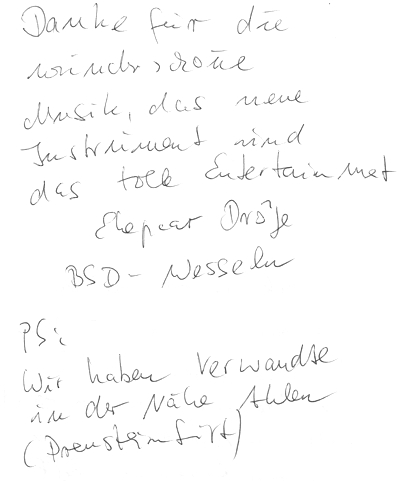 Danke für die
wunderschöne
Musik, das neue
Instrument und
das tolle Entertainmet
Ehepaar Dröje
BSD - Wesseln
PS:
Wir haben Verwandte
in der Nähe Ahlen
(Drensteinfurt)